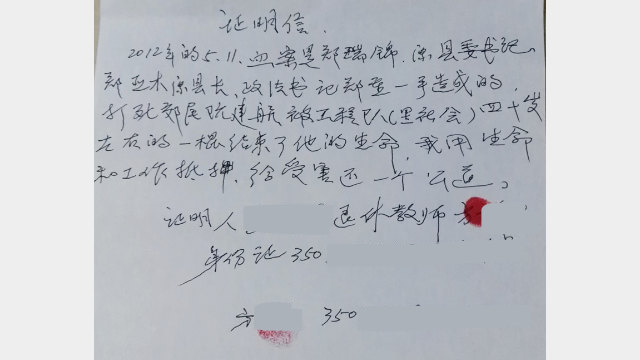 证明信.
2012年的5.11.血案是郑瑞锦.原县委书记、
郑亚木原县长、政法书记郑重一手造成的,
打死郊尾阮建航被工程队人(黑社会)四十岁
左右的一棍结束了他的生命,我用生命
和工作抵押,给受害还一个公道。
证明人. 退休教师 方
身份证350.
方 350